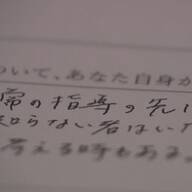 ついて、あなた自身が
常の指導の先に
知らない者はいな
考える時もある